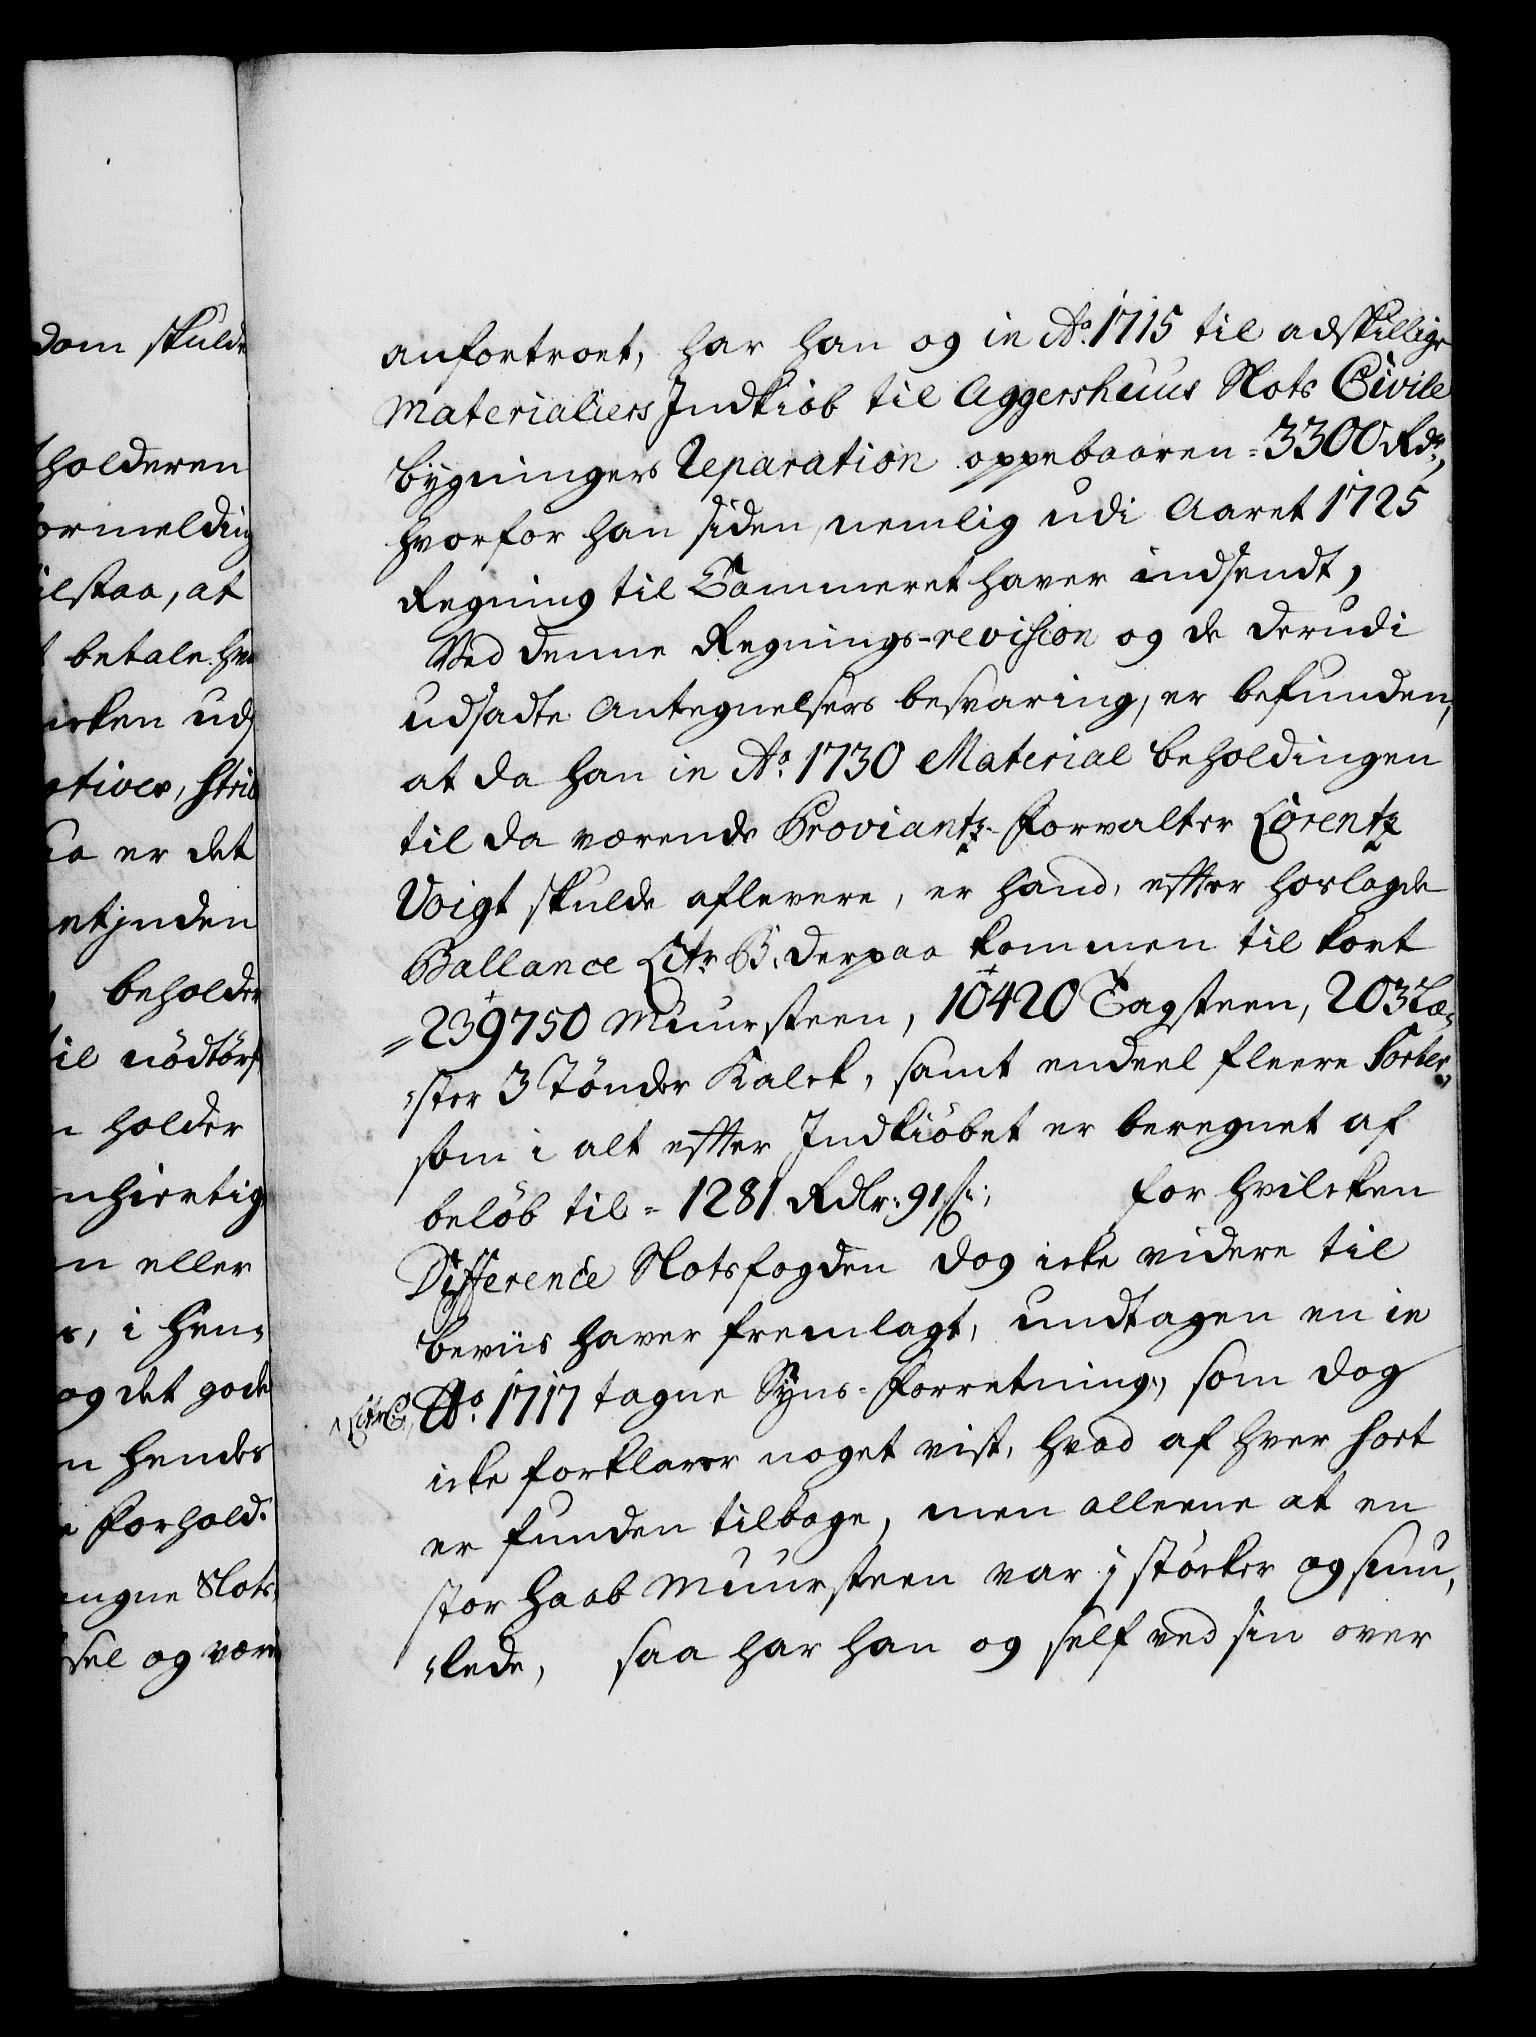 dom skulde
holderen
ormelding
ilstaa, at
betale hva
irken uds
otiver, stri
aa er det
etjnden
beholder
til nödtörf
holder
nhiertig
n eller
r, i hen-
og det gode
n hendes
e forhold.
angne Slots
sel og være
anfortroet, har han og in Ao. 1715 til adskillige
Materialiers Indkiöb til Aggershuus Slots Civile
bygningers Reparation oppebaaren = 3300 Rdr.,
hvorfor han siden, nemlig udi Aaret 1725
Regning til Cammeret haver indsendt,
Ved denne Regnings-revision og de derudi
udsadte Antegnelsers besvaring, er befunden,
at da han in Ao. 1730 Material beholdingen
til da værende Proviantz-forvalter Lorentz
Voigt skulde aflevere, er hand, efter hoslagde
Ballance Litr. B. derpaa kommen til kort
= 239750 Muursteen, 10420 Tagsteen, 203 Læ-
-ster 3 Tönder Kalck, samt endeel fleere Sorter,
som i alt efter Indkiöbet er beregnet af
belöb til = 1281 Rdlr: 91 s:, for hvilcken
Difference Slotsfogden dog icke videre til
beviis haver fremlagt, undtagen en in
^ Litr. C, Ao. 1717 tagne Syns-forretning, som dog
icke forklarer noget vist, hvad af hver sort
er funden tilbage, men alleene at en
stor Haab Muursteen var i stöcker og smu-
-lede, saa har han og self ved sin over